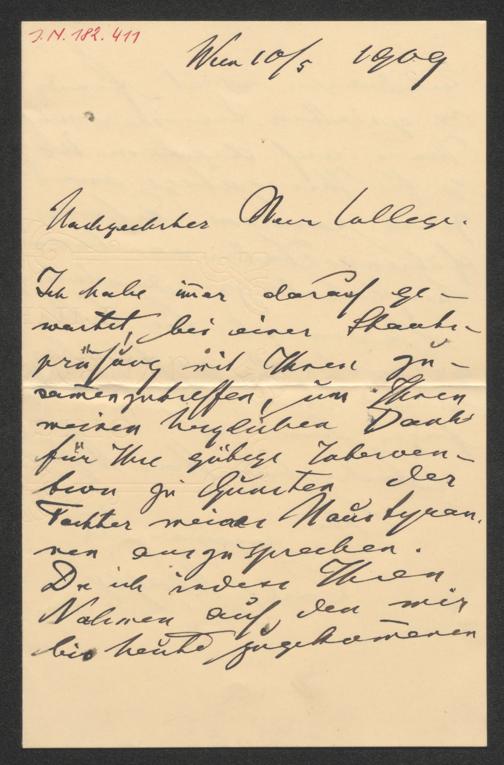 I.N. 182.411
Wien 10/5 1909
Hochgeehrter Herr College.
Ich habe im̄er darauf ge-
wartet, bei einer Staats-
prüfung mit Ihnen zu-
sam̄enzutreffen, um Ihnen
meinen herzlichen Dank
für Ihre gütige Interven-
tion zu Gunsten der
Tochter meines Haustyran-
nen auszusprechen.
Da ich indess Ihren
Nahmen auf den mir
bis heute zugekom̄enen